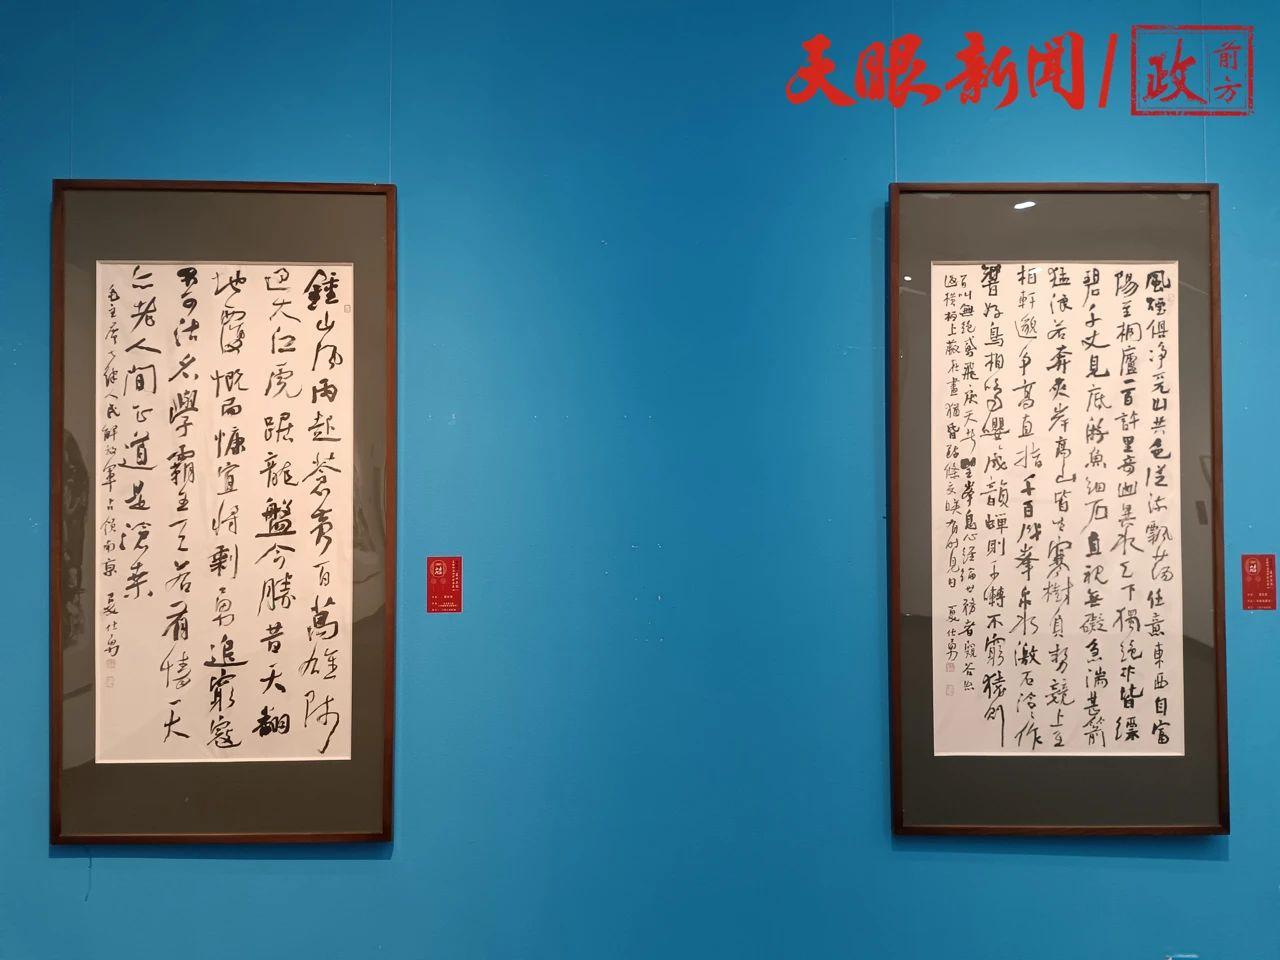 天眼新闻/政前方
鍾山风雨起蒼黄百萬雄师
过大江虎踞龍盤今勝昔天翻
地覆慨而慷宜将剩勇追窮寇
不可沽名學霸王天若有情天
亦老人间正道是滄桑
毛主席人民解放軍占领南京 夏仕勇
風煙俱净天山共色從流飘蕩任意東西自富
陽至桐廬一百許里奇山異水天下獨絶水皆縹
碧千丈見底游魚细石直視無礙急湍甚箭
猛浪若奔夾岸高山皆生寒樹負势競上互
相軒邈争高直指千百成峯泉水激石泠泠作
響好鳥相鸣嚶嚶成韻蟬則千轉不窮猿則
百叫無絶鸢飛戾天者望峯息心经綸世務者窺谷忘
返横柯上蔽在晝猶昏疏條交映有时見日 夏仕勇